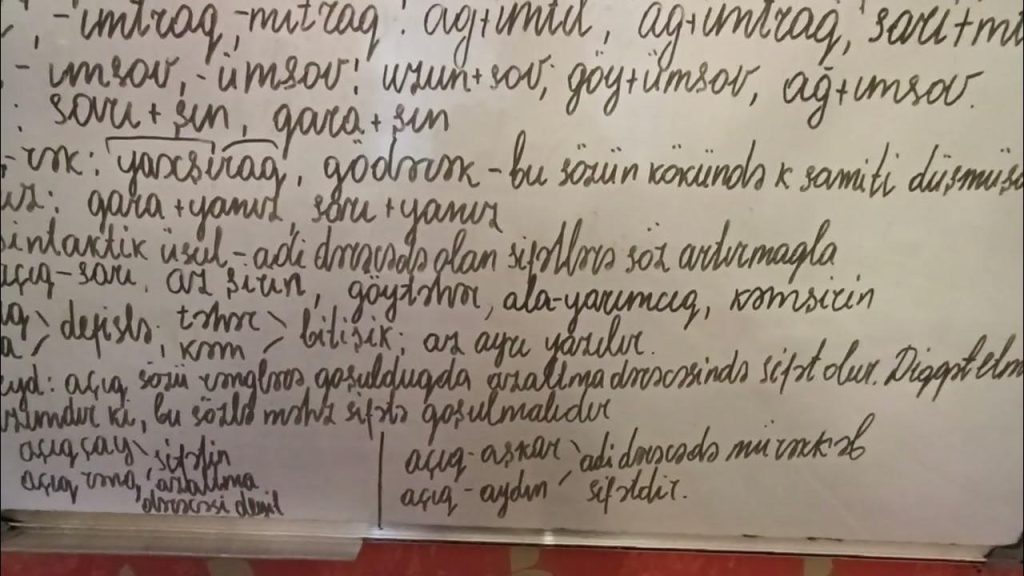 -ımtraq, -mtraq: ağ+ımtıl, ağ+ımtraq, sarı+mt
- ımsov, -ümsov: uzun+sov, göy+ümsov, ağ+ımsov.
: sarı+şın, qara+şın
-rək: yaxşıraq, gödərək - bu sözün kökündə k samiti düşmüşd
ız: qara+yanız, sarı+yanız
sintaktik üsul - adi dərəcədə olan sifətlərə söz artırmaqla
açıq-sarı, az şirin, göytəhər, ala-yarımçıq, kəmşirin
defislə; təhər, kəm bitişik; az ayrı yazılır.
eyd: açıq sözü rənglərə qoşulduqda azaltma dərəcəsində sifət olur. Diqqət etm
lazımdır ki, bu sözlə məhz sifətə qoşulmalıdır
açıq çay sifətin
açıq rəng, azaltma
dərəcəsi deyil
açıq-aşkar adi dərəcədə mürəkkəb
açıq-aydın sifətdir.